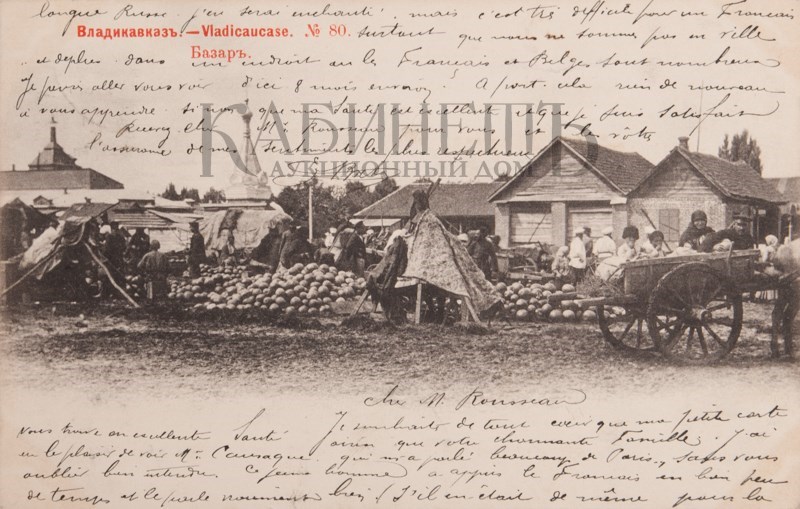 langue Russe j'en serai enchanté, mais c'est très difficile pour un Français
Владикавказъ.—Vladicaucase. № 80. surtout que nous ne sommes pas en ville
Базаръ.
et de plus dans un endroit ou les Français et Belges sont nombreux
Je pense aller vous voir d'ici 8 mois environ. A part cela rien de nouveau
à vous apprendre si non que ma Santé est excellente et que je suis Satisfait
КАБИНЕТЪ
Cher Mr Rousseau pour vous et les vôtres
Аукционный дом
l'assurance de mes sentiments les plus respectueux
Cher M. Rousseau
Je souhaite de tout cœur que ma petite carte
vous trouve en excellente Santé ainsi que votre charmante Famille. J'ai
eu le plaisir de voir Mr qui m'a parlé beaucoup de Paris, sans vous
oublier bien entendu. Ce jeune homme a appris le Français en bien peu
de temps et le parle vraiment bien. S'il en était de même pour la